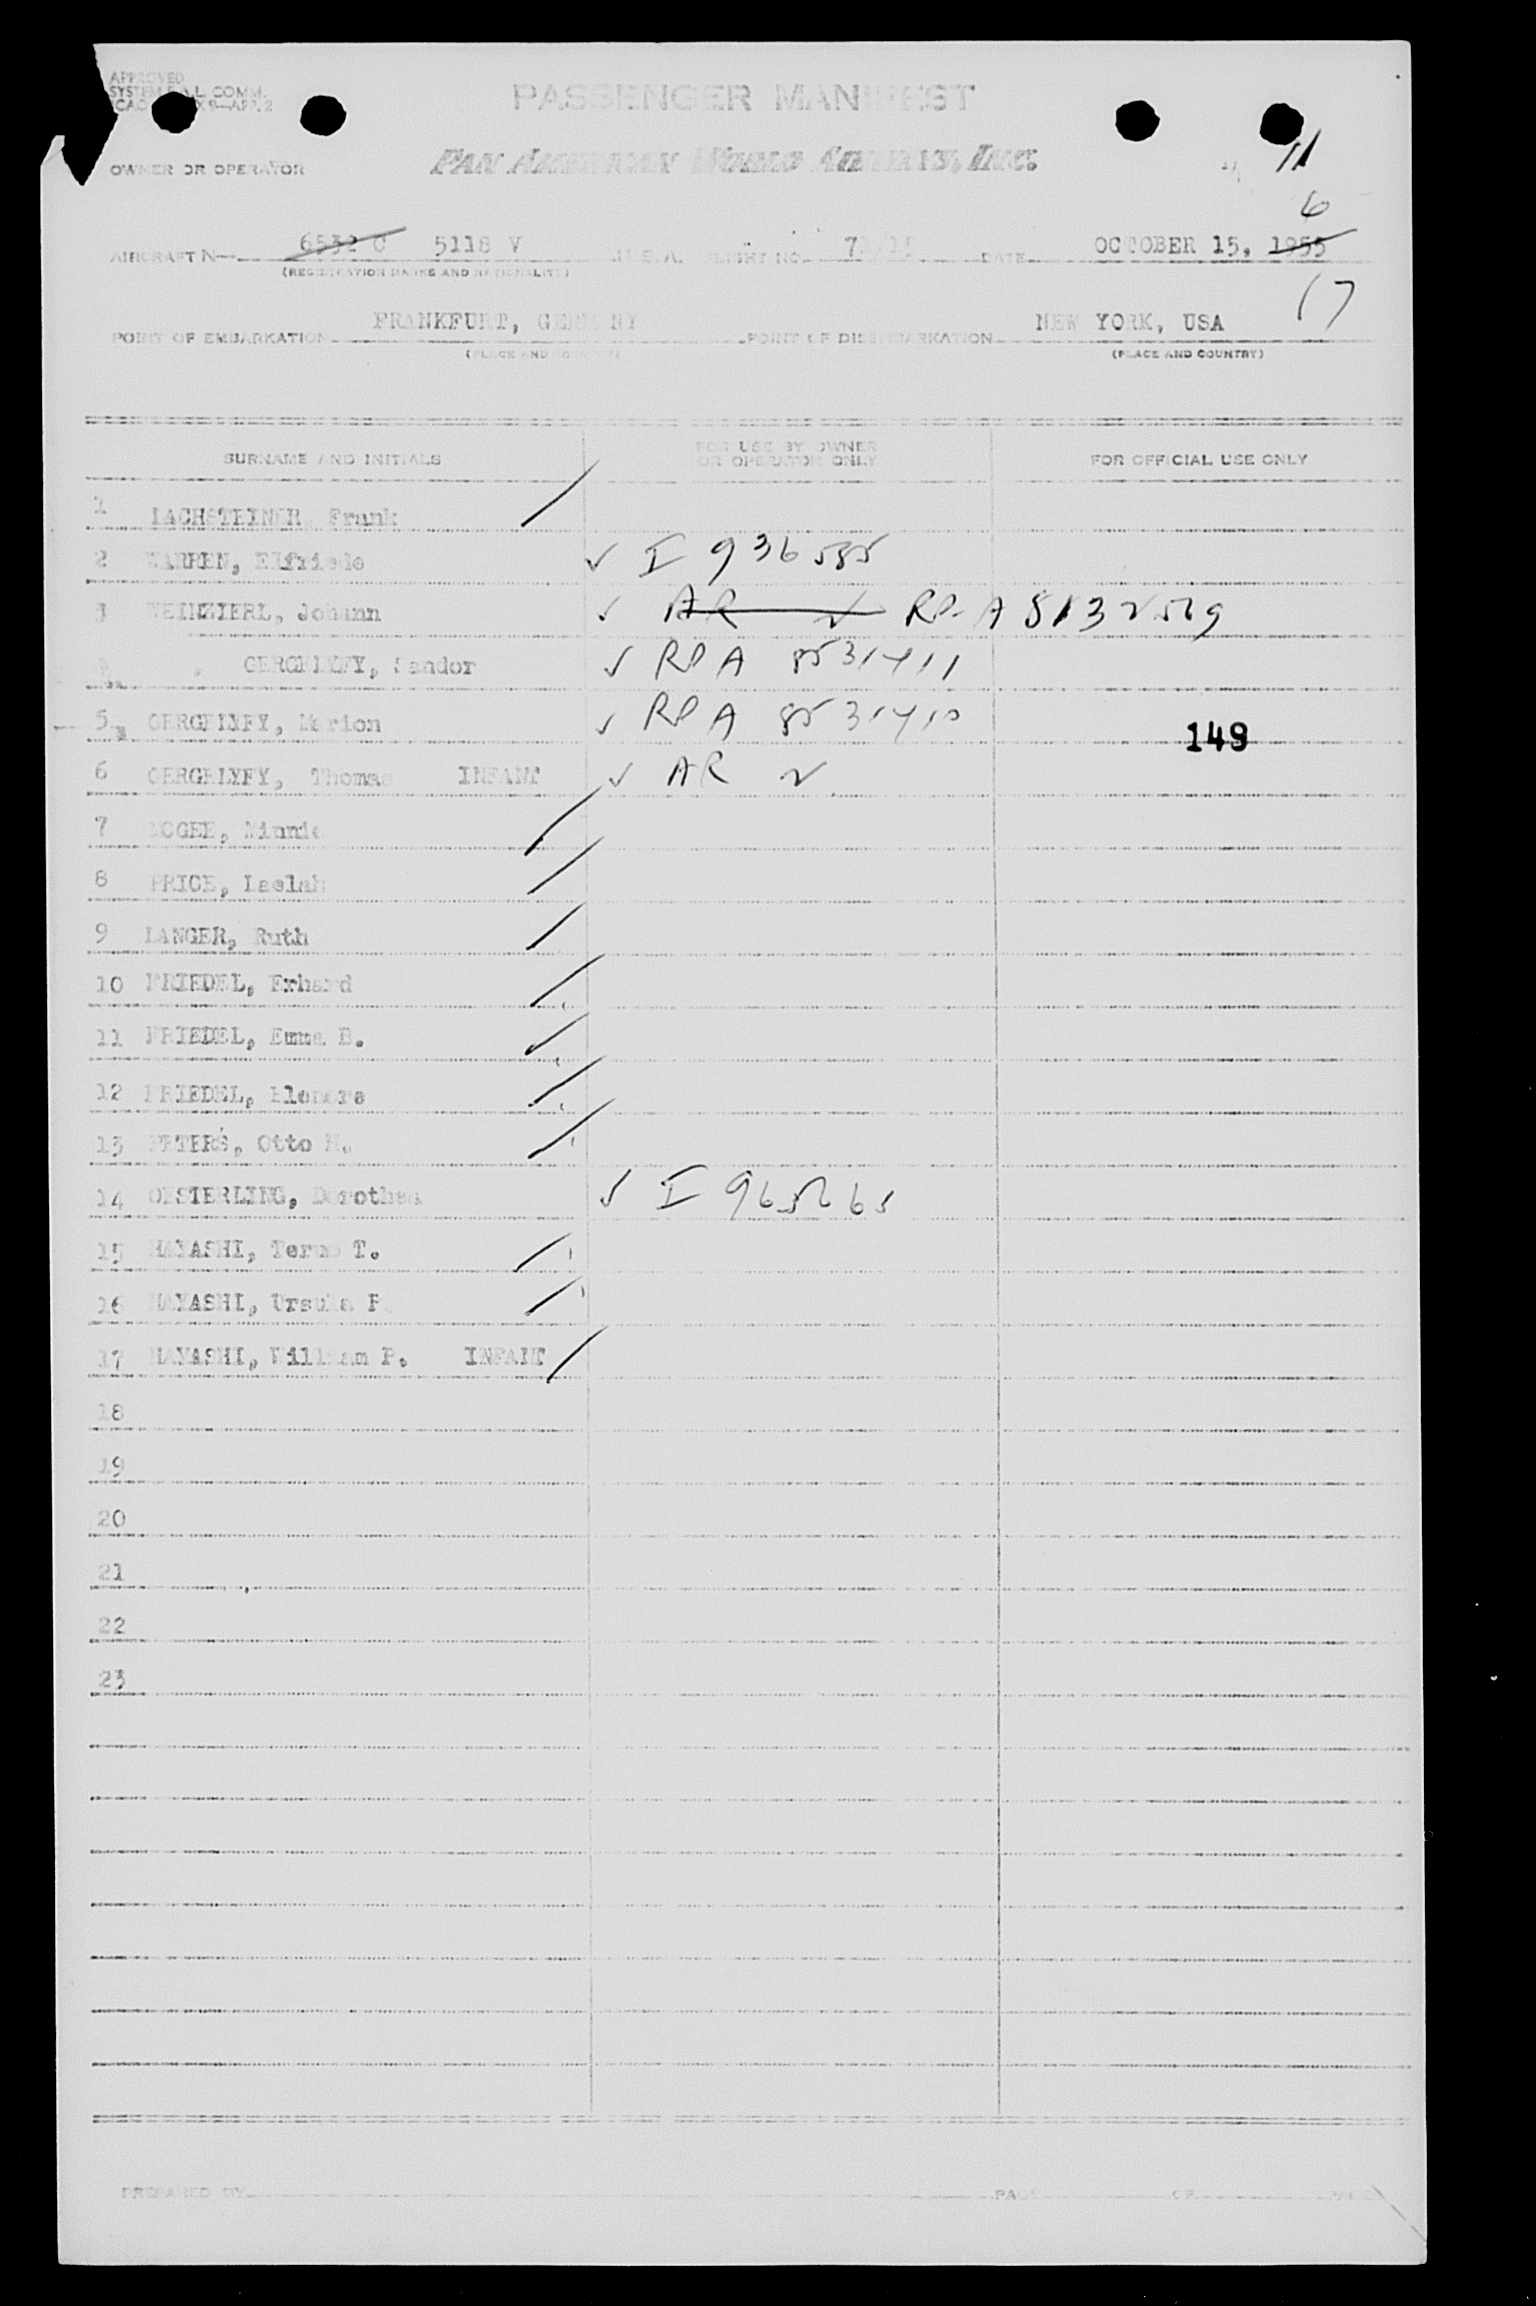 APPROVED
SYSTEM F.A.L. COMM.
ICAO X 9—APP. 2
PASSENGER MANIFEST
OWNER OR OPERATOR PAN AMERICAN WORLD AIRWAYS, INC. 11
6
AIRCRAFT N— 6532 C 5118 V U.S.A. FLIGHT NO. DATE OCTOBER 15, 1955
(REGISTRATION MARKS AND NATIONALITY)
17
POINT OF EMBARKATION FRANKFURT, GERMANY POINT OF DISEMBARKATION NEW YORK, USA
(PLACE AND COUNTRY) (PLACE AND COUNTRY)
SURNAME AND INITIALS FOR USE BY OWNER OR OPERATOR ONLY FOR OFFICIAL USE ONLY
1 LACHSTEINER Frank
2 WARREN, Elfriede ✓ I 936585
3 WEINZIERL, Johann ✓ AR ✓ RP-A 8132569
GERGELYFY, Sandor ✓ RPA 8531411
5 GERGELYFY, Marion ✓ RPA 8531410
149
6 GERGELYFY, Thomas INFANT ✓ AR ✓
7 Minnie
8 PRICE, Laelah
9 LANGER, Ruth
10 FRIEDEL, Erhard
11 FRIEDEL, Emma E.
12 FRIEDEL, Elenore
13 PETERS, Otto H.
14 OESTERLING, Dorothea ✓ I
15 HAYASHI, Teruo T.
16 HAYASHI, Ursula P.
17 HAYASHI, William P. INFANT
18
19
20
21
22
23
PREPARED BY PAGE OF PAGES